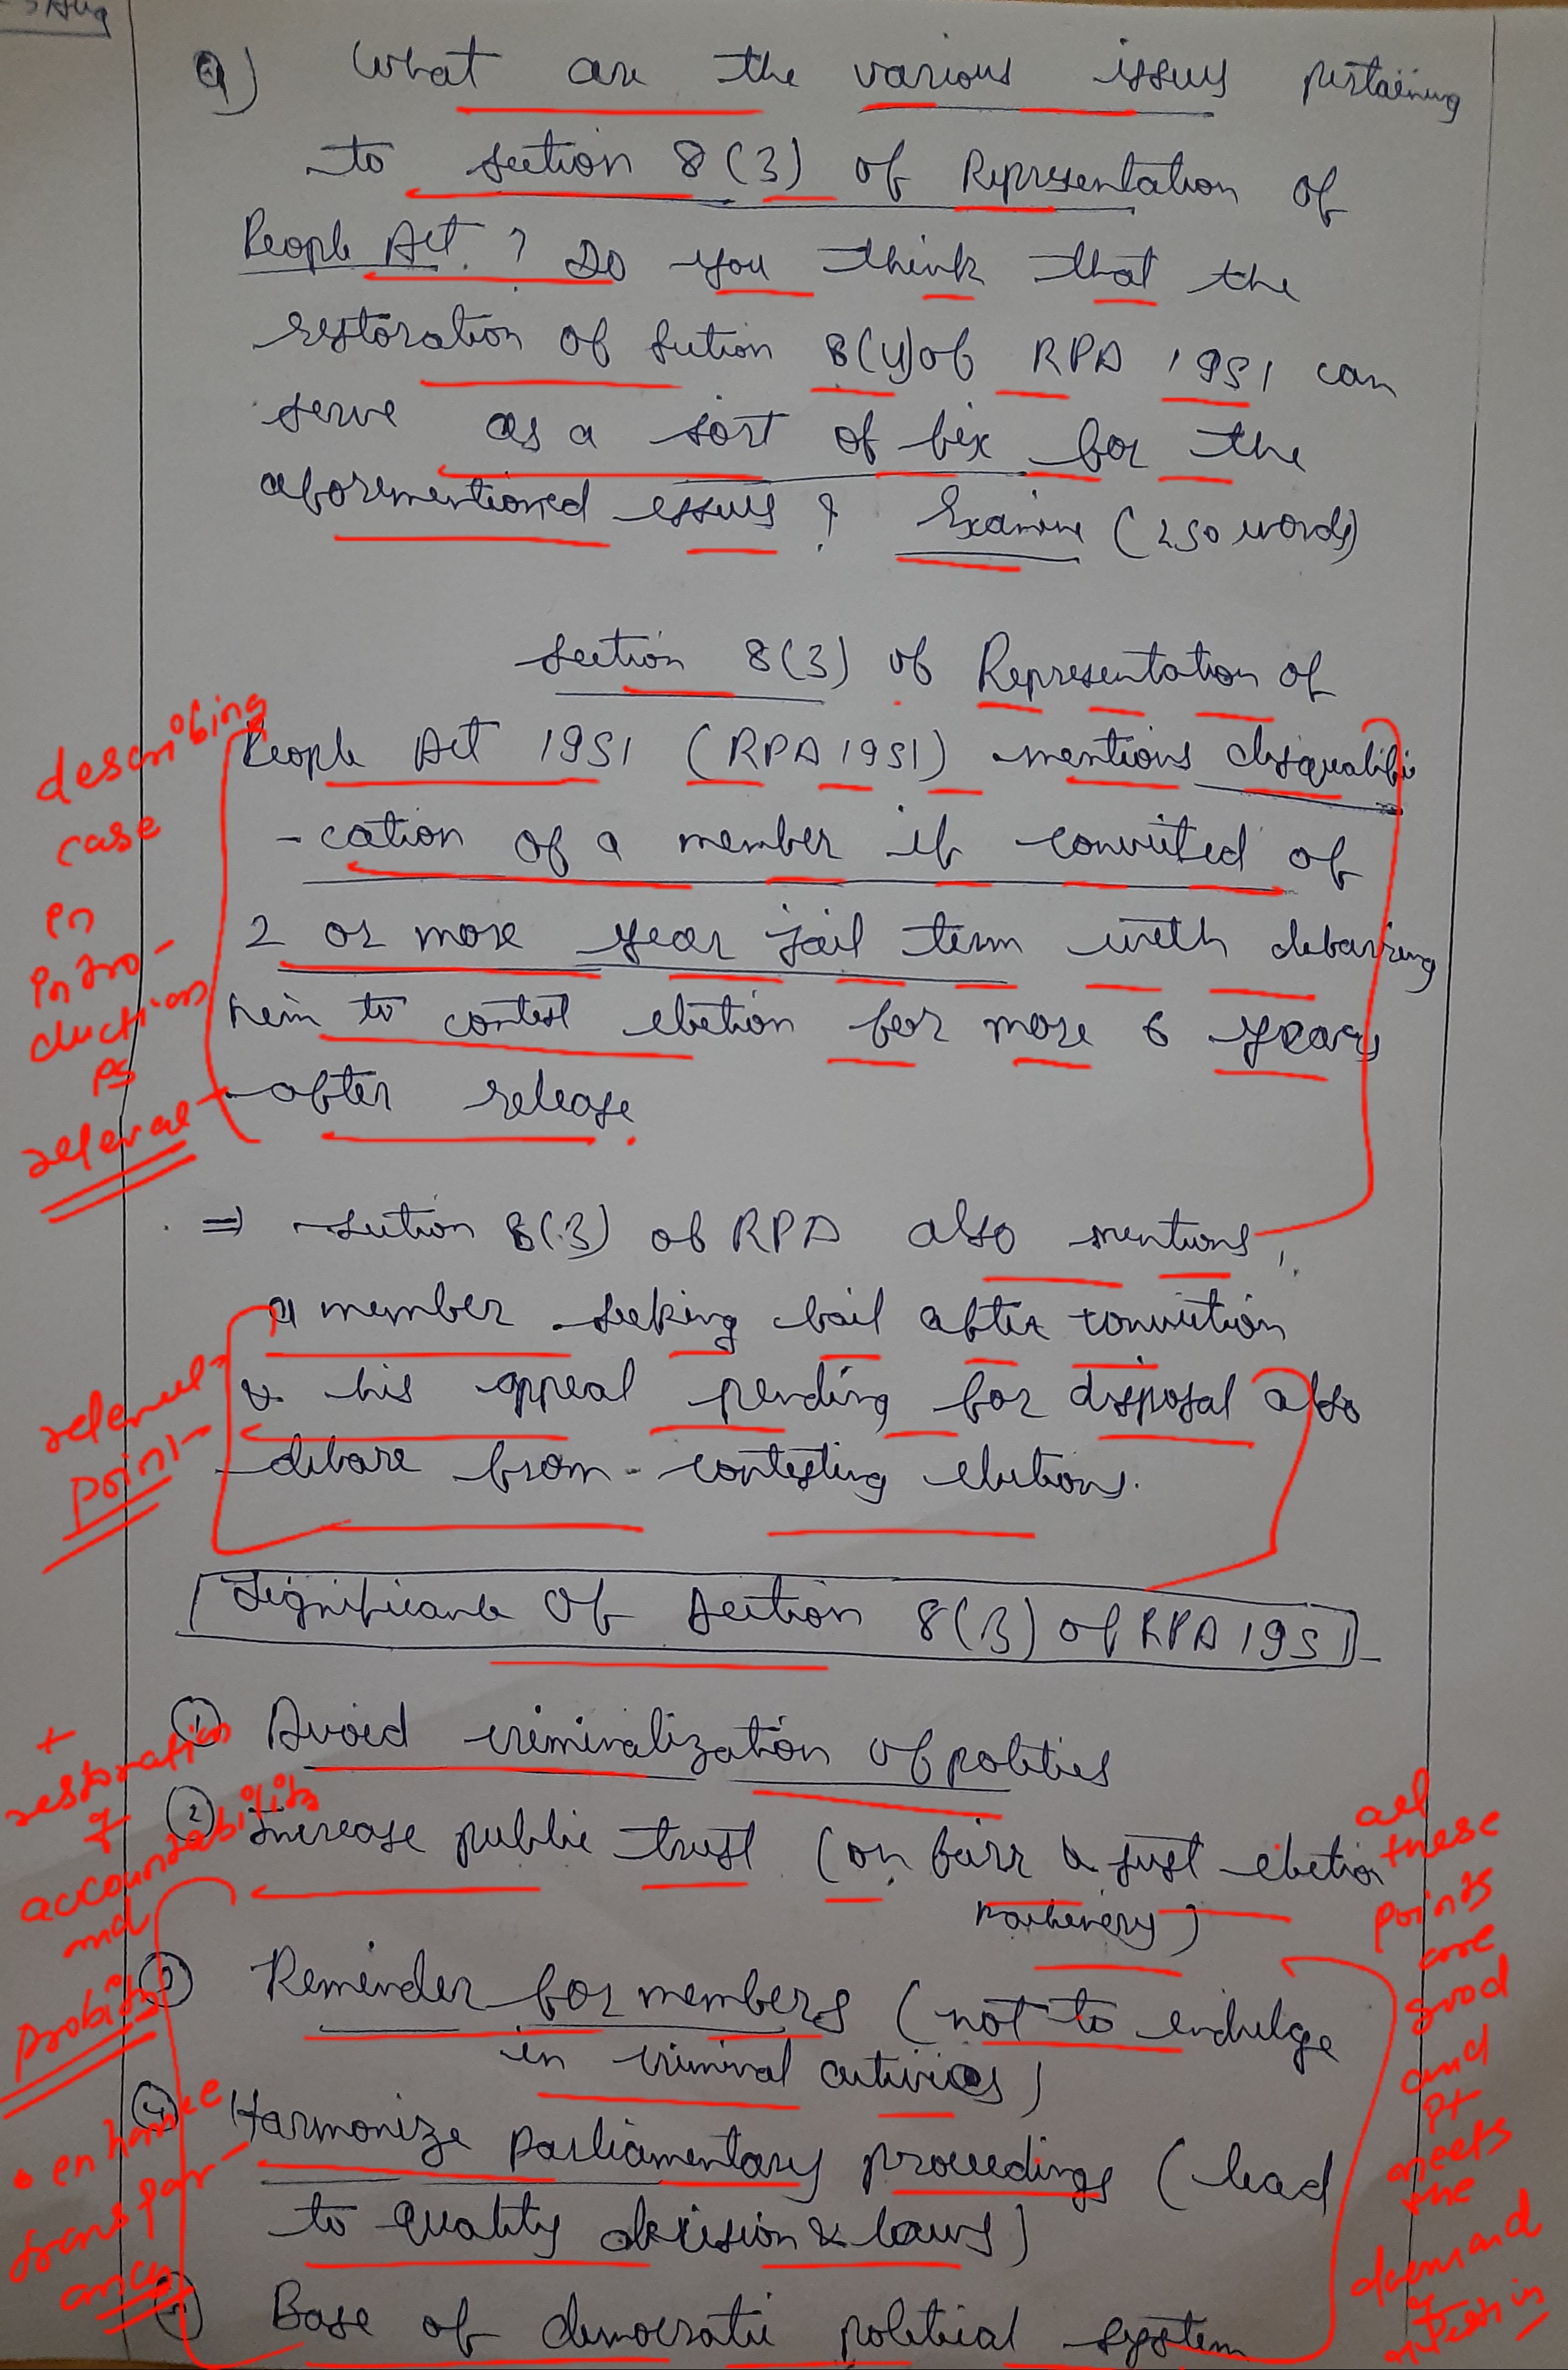 5 Aug
Q) What are the various issues pertaining
to section 8(3) of Representation of
People Act ? Do you think that the
restoration of section 8(4) of RPA 1951 can
serve as a sort of fix for the
aforementioned issues ? Examine (250 words)
Section 8(3) of Representation of
People Act 1951 (RPA 1951) mentions disqualifi
-cation of a member if convicted of
2 or more year jail term with debarring
him to contest election for more 6 years
after release.
describing
case
in
intro-
duction
is
releval
⇒ section 8(3) of RPA also mentions,
a member seeking bail after conviction
& his appeal pending for disposal also
debare from contesting elections.
relevent
point
Significance Of Section 8(3) of RPA 1951
① Avoid criminalization of polities
② Increase public trust (on fair & just election
machinery)
③ Remender for members (not to indulge
in criminal activities)
④ Harmonize parliamentary proceedings (lead
to quality decision & laws)
⑤ Base of democratic political system
+
restoration
of
accountability
and
probity
• enhance
transpar-
ancy
all
these
points
are
good
and
pt
meets
the
demand
of